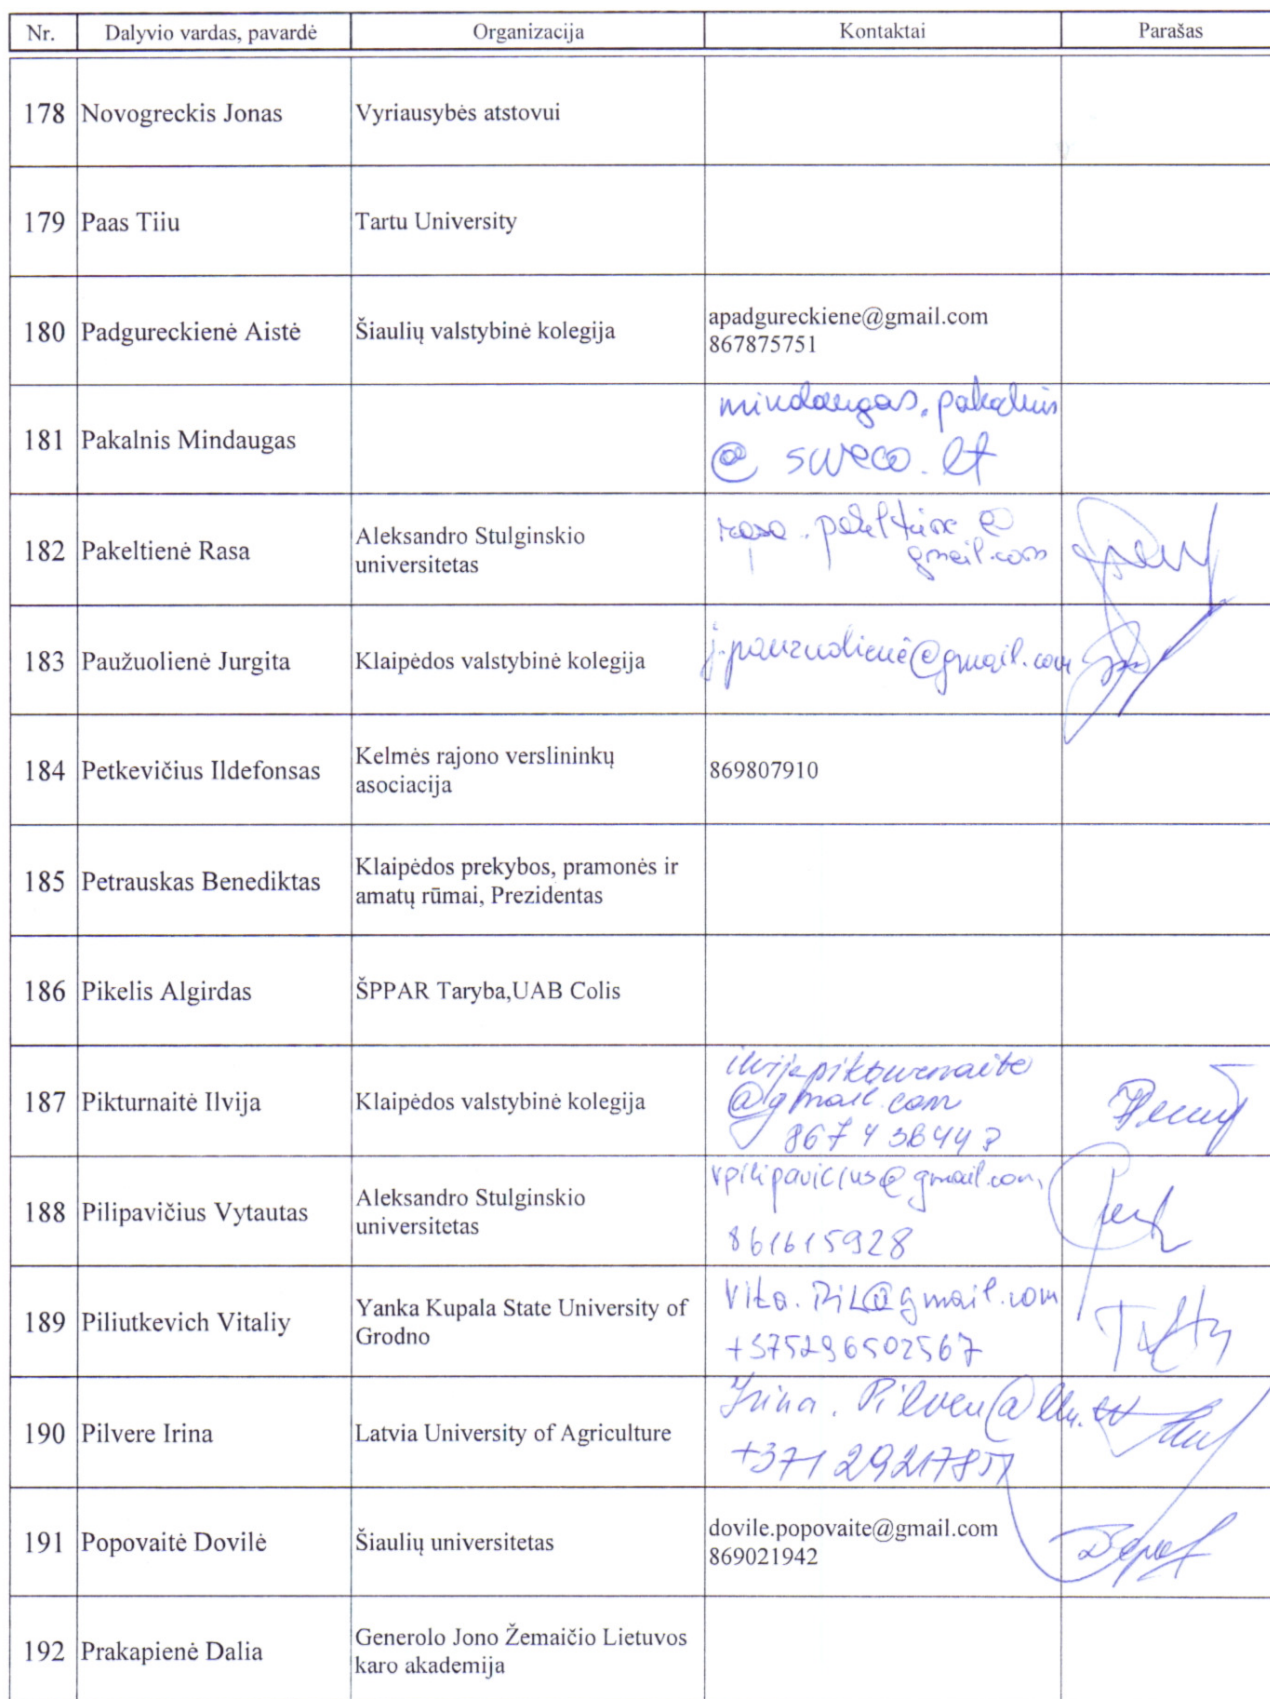 Nr. Dalyvio vardas, pavardė Organizacija Kontaktai Parašas
178 Novogreckis Jonas Vyriausybės atstovui
179 Paas Tiiu Tartu University
180 Padgureckienė Aistė Šiaulių valstybinė kolegija apadgureckiene@gmail.com
867875751
181 Pakalnis Mindaugas mindaugas.pakalnis
@ sweco.lt
182 Pakeltienė Rasa Aleksandro Stulginskio
universitetas
rasa.pakeltiene @
gmail.com
183 Paužuolienė Jurgita Klaipėdos valstybinė kolegija j.pauzuolienė@gmail.com
184 Petkevičius Ildefonsas Kelmės rajono verslininkų
asociacija
869807910
185 Petrauskas Benediktas Klaipėdos prekybos, pramonės ir
amatų rūmai, Prezidentas
186 Pikelis Algirdas ŠPPAR Taryba,UAB Colis
187 Pikturnaitė Ilvija Klaipėdos valstybinė kolegija
@gmail.com
188 Pilipavičius Vytautas Aleksandro Stulginskio
universitetas
vpilipavicius@gmail.com,
861615928
189 Piliutkevich Vitaliy Yanka Kupala State University of
Grodno
Vita.PiL@gmail.com
+375296502567
190 Pilvere Irina Latvia University of Agriculture
191 Popovaitė Dovilė Šiaulių universitetas dovile.popovaite@gmail.com
869021942
192 Prakapienė Dalia Generolo Jono Žemaičio Lietuvos
karo akademija